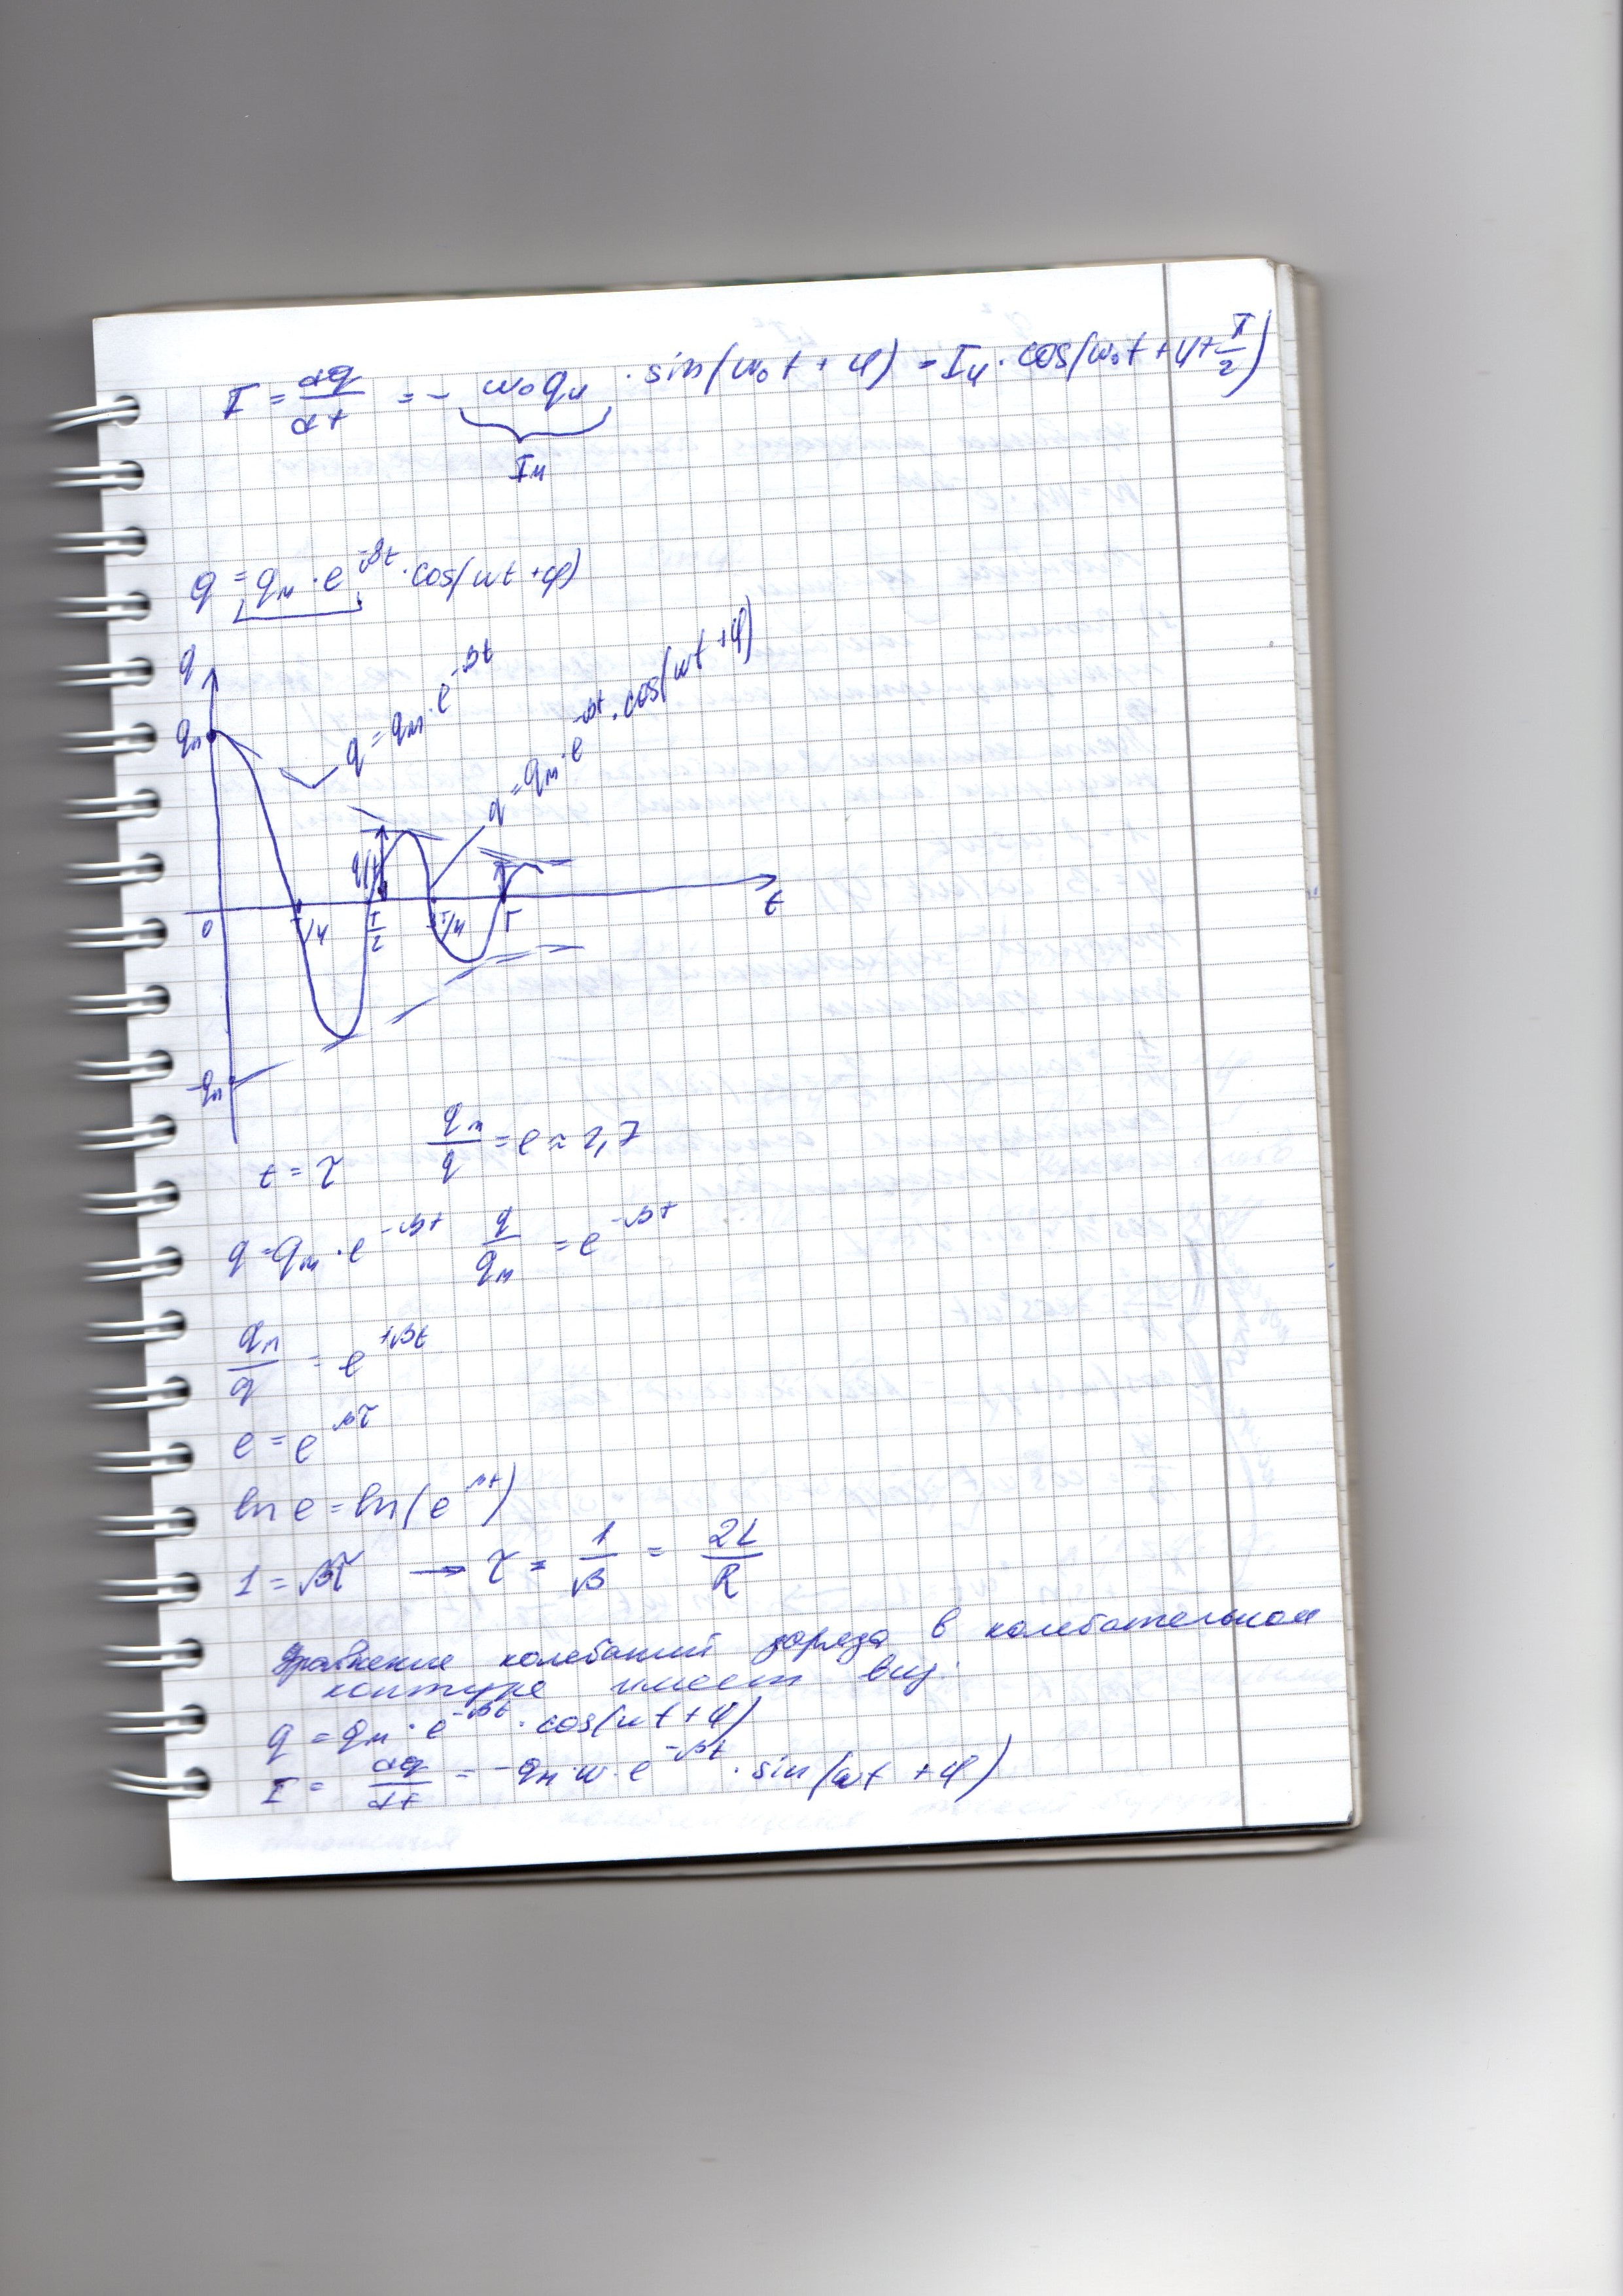 I = dq/dt = - ω₀qм · sin(ω₀t + φ) = Iм · cos(ω₀t + φ + π/2)
Iм
q = qм · e^-βt · cos(ωt + φ)
q
qм
q = qм · e^-βt
q = qм · e^-βt · cos(ωt + φ)
0
T/4
T/2
T/4
T
t
-qм
t = τ qм/q = e ≈ 2,7
q = qм · e^-βt q/qм = e^-βt
qм/q = e^+βt
e = e^βτ
ln e = ln(e^βt)
1 = βτ → τ = 1/β = 2L/R
Уравнение колебаний заряда в колебательном
контуре имеет вид:
q = qм · e^-βt · cos(ωt + φ)
I = dq/dt = - qм · ω · e^-βt · sin(ωt + φ)